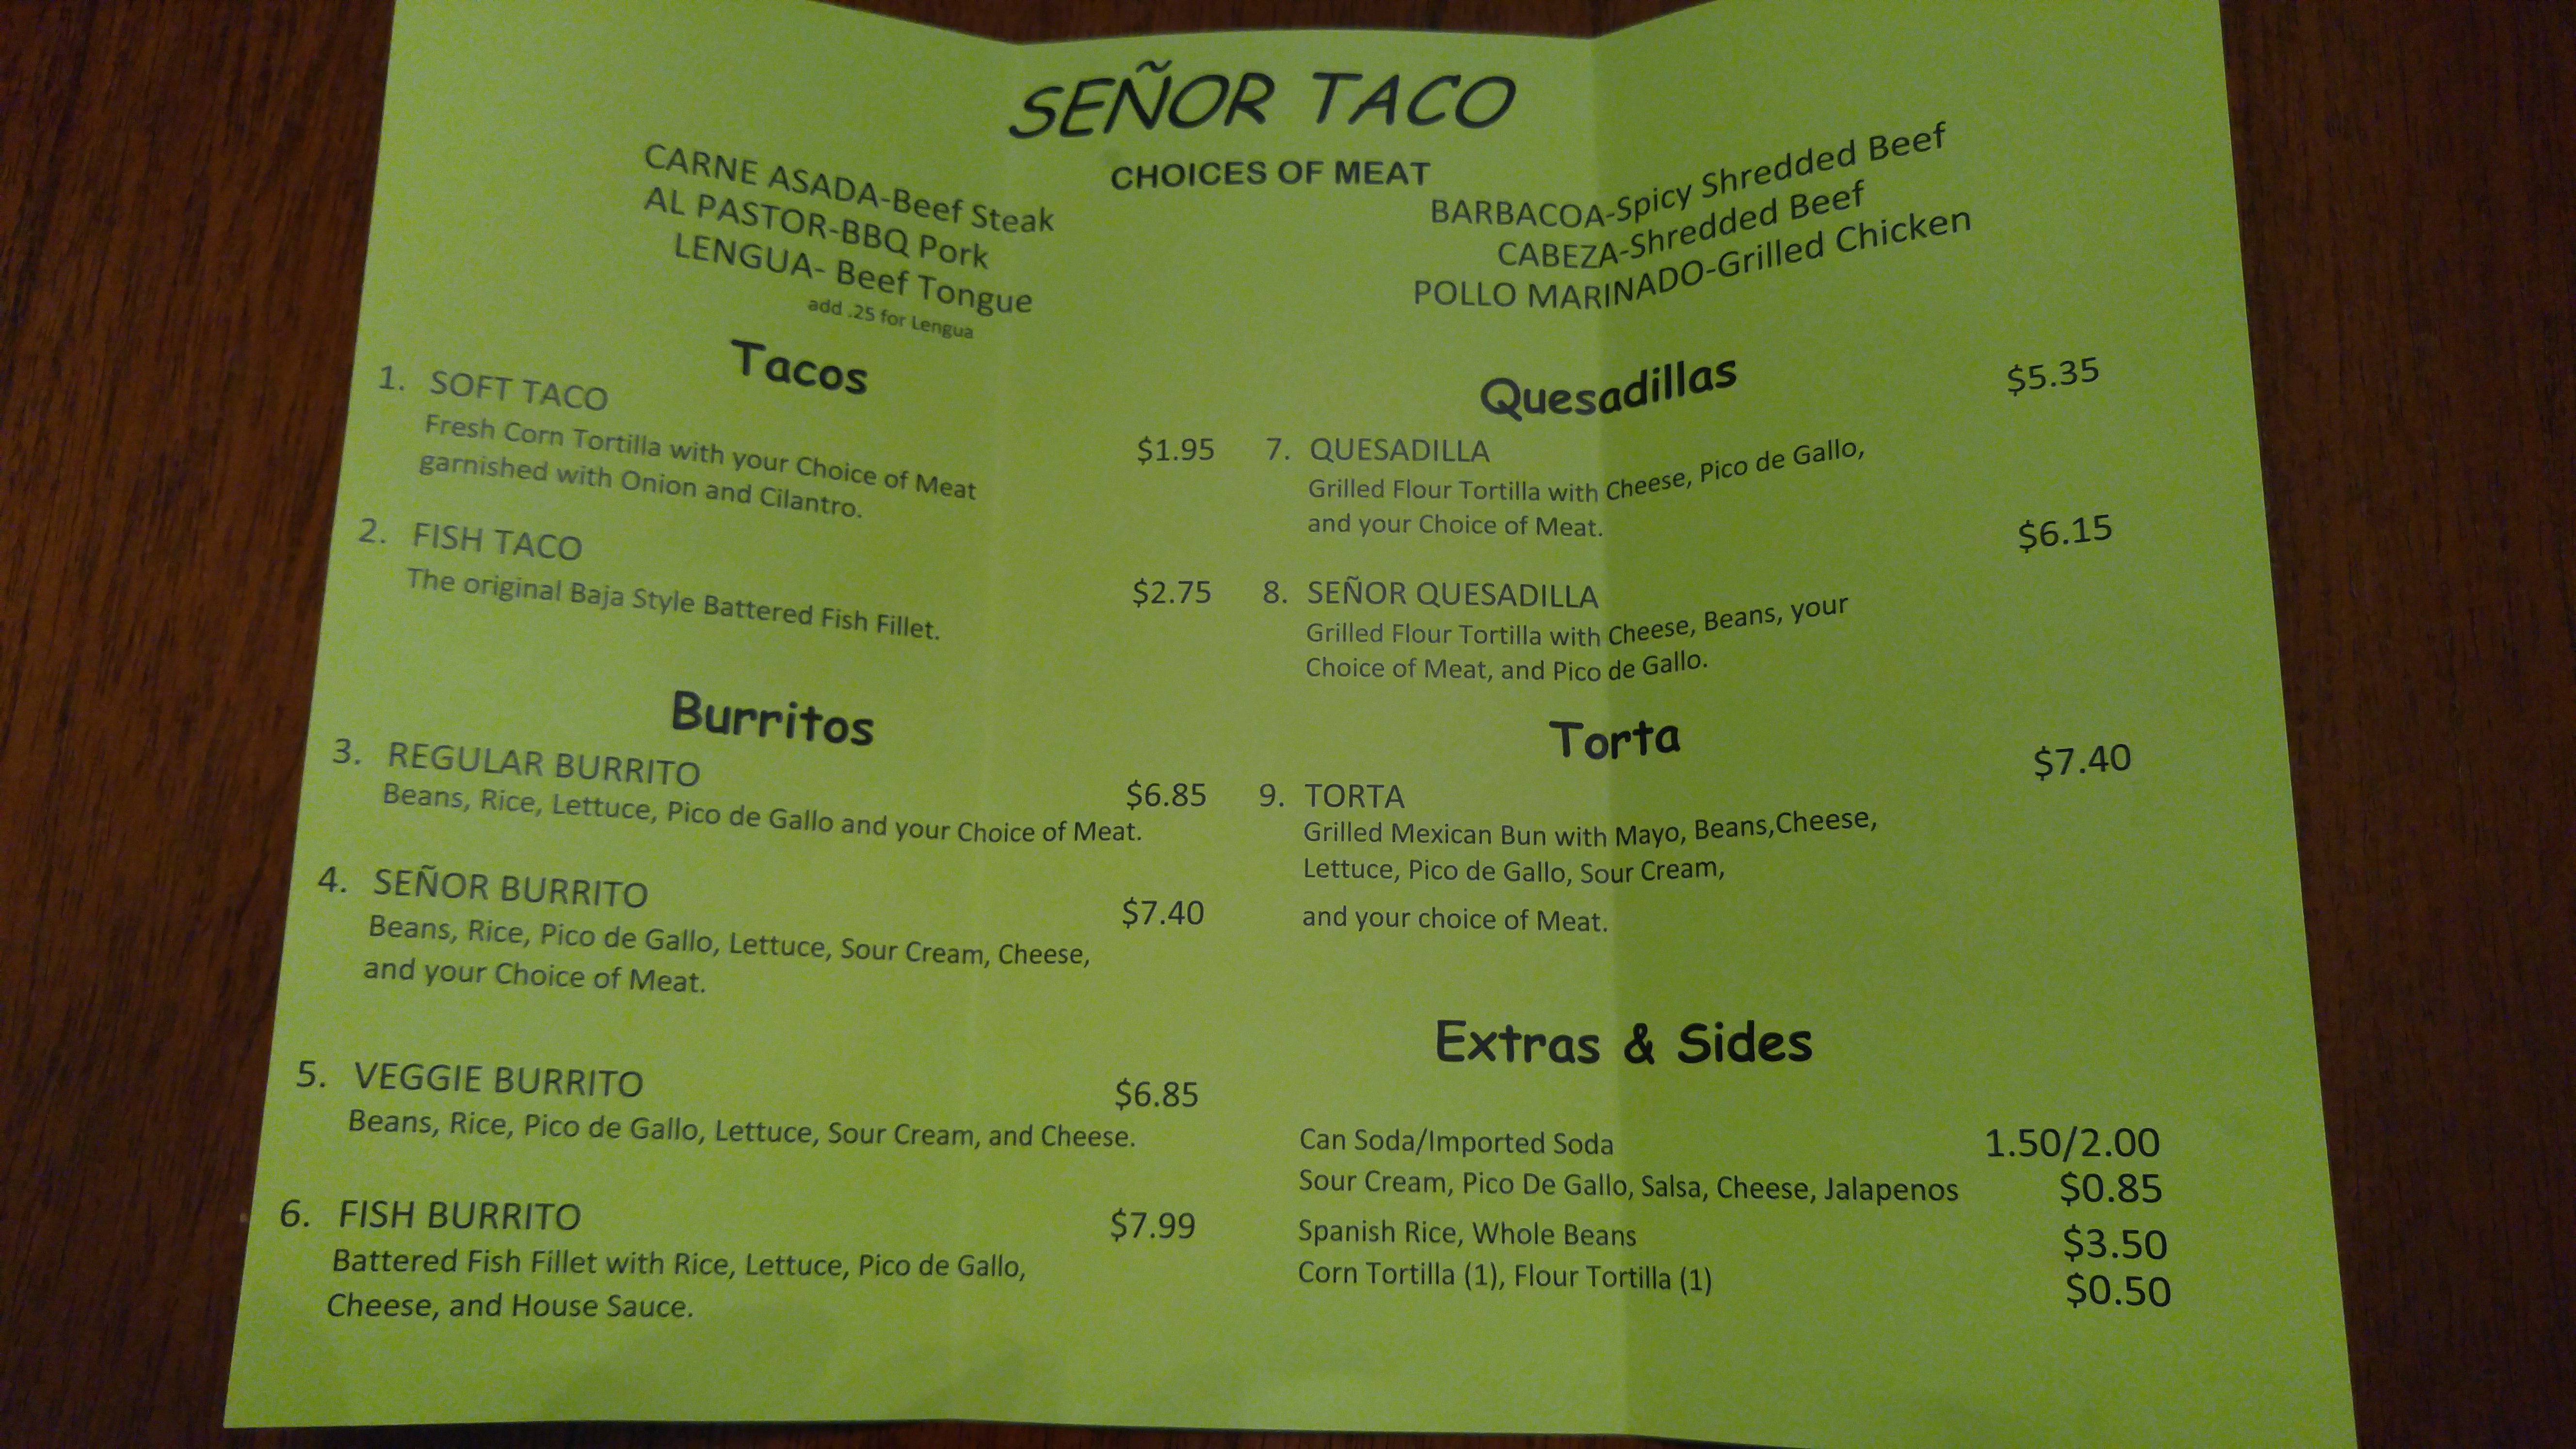 SEÑOR TACO
CHOICES OF MEAT
CARNE ASADA-Beef Steak
AL PASTOR-BBQ Pork
LENGUA- Beef Tongue
add .25 for Lengua
BARBACOA-Spicy Shredded Beef
CABEZA-Shredded Beef
POLLO MARINADO-Grilled Chicken
Tacos
1. SOFT TACO $1.95
Fresh Corn Tortilla with your Choice of Meat
garnished with Onion and Cilantro.
2. FISH TACO $2.75
The original Baja Style Battered Fish Fillet.
Burritos
3. REGULAR BURRITO $6.85
Beans, Rice, Lettuce, Pico de Gallo and your Choice of Meat.
4. SEÑOR BURRITO $7.40
Beans, Rice, Pico de Gallo, Lettuce, Sour Cream, Cheese,
and your Choice of Meat.
5. VEGGIE BURRITO $6.85
Beans, Rice, Pico de Gallo, Lettuce, Sour Cream, and Cheese.
6. FISH BURRITO $7.99
Battered Fish Fillet with Rice, Lettuce, Pico de Gallo,
Cheese, and House Sauce.
Quesadillas
7. QUESADILLA $5.35
Grilled Flour Tortilla with Cheese, Pico de Gallo,
and your Choice of Meat.
8. SEÑOR QUESADILLA $6.15
Grilled Flour Tortilla with Cheese, Beans, your
Choice of Meat, and Pico de Gallo.
Torta
9. TORTA $7.40
Grilled Mexican Bun with Mayo, Beans,Cheese,
Lettuce, Pico de Gallo, Sour Cream,
and your choice of Meat.
Extras & Sides
Can Soda/Imported Soda 1.50/2.00
Sour Cream, Pico De Gallo, Salsa, Cheese, Jalapenos $0.85
Spanish Rice, Whole Beans $3.50
Corn Tortilla (1), Flour Tortilla (1) $0.50